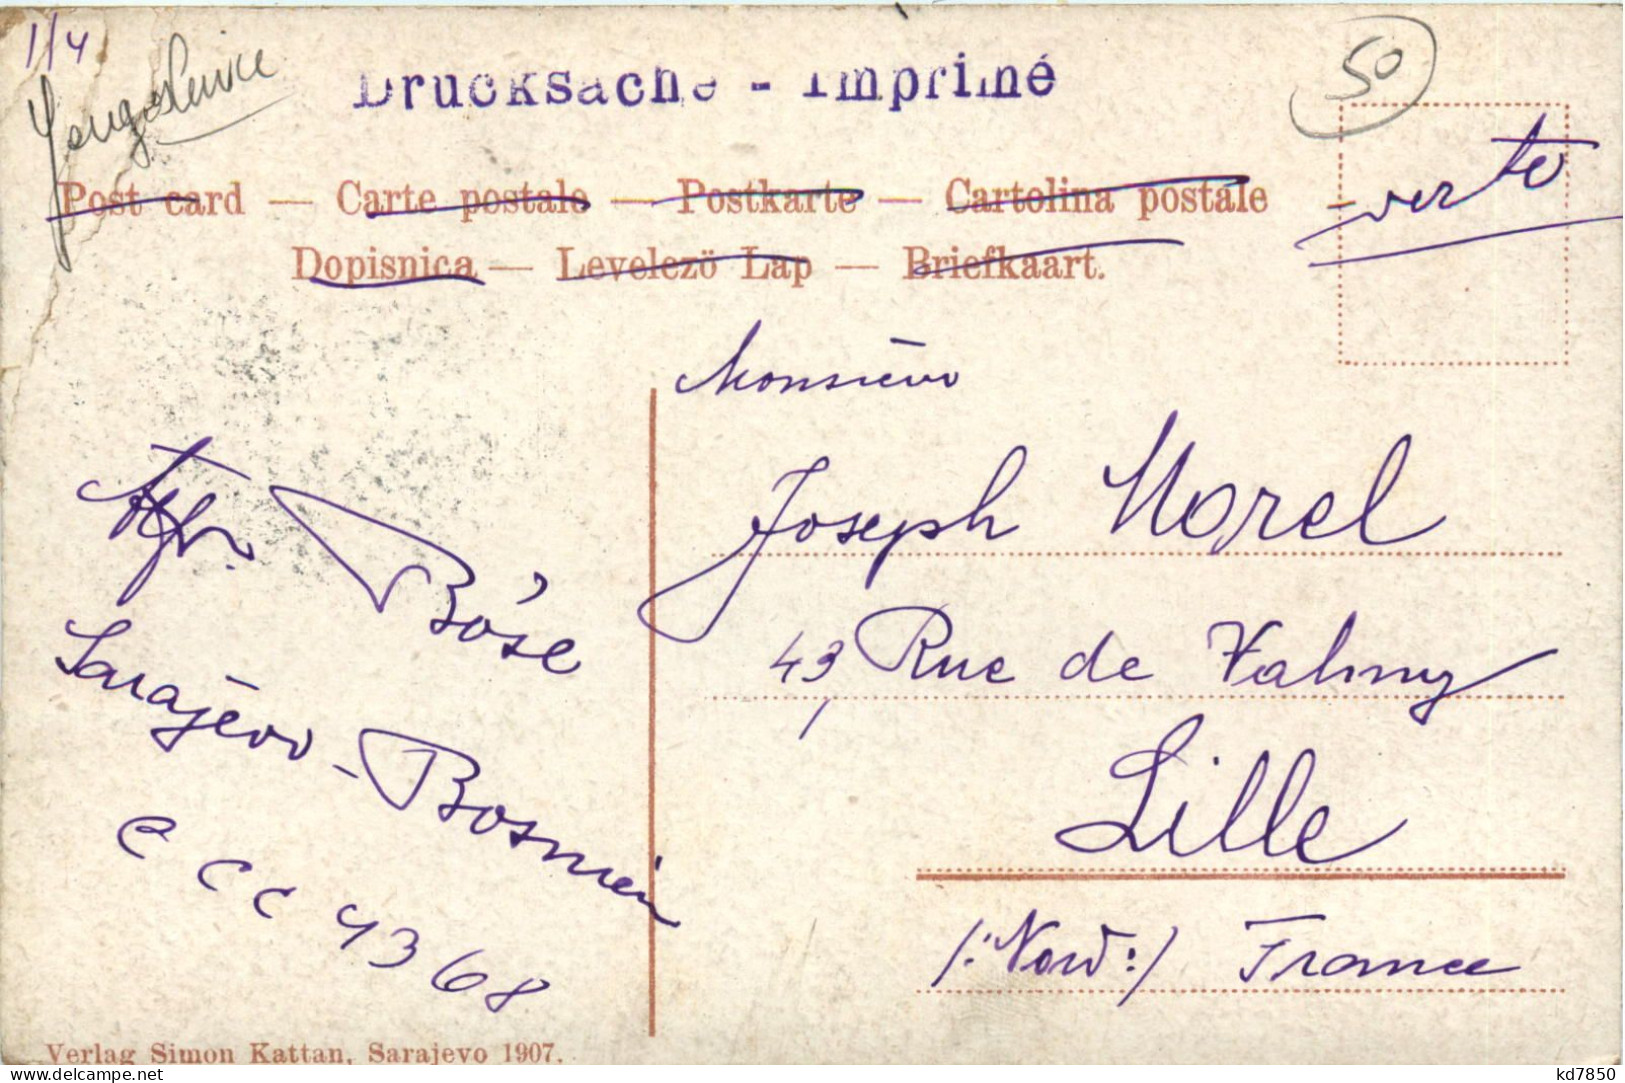 1/4
Yougoslavie
50
Drucksache - Imprimé
Post card — Carte postale — Postkarte — Cartolina postale
Dopisnica — Levelezö Lap — Briefkaart.
verte
Monsieur
Joseph Morel
43, Rue de Valmy
Lille
/:Nord:/ France
Böse
Sarajevo - Bosnien
c c c 4368
Verlag Simon Kattan, Sarajevo 1907.
kd7850